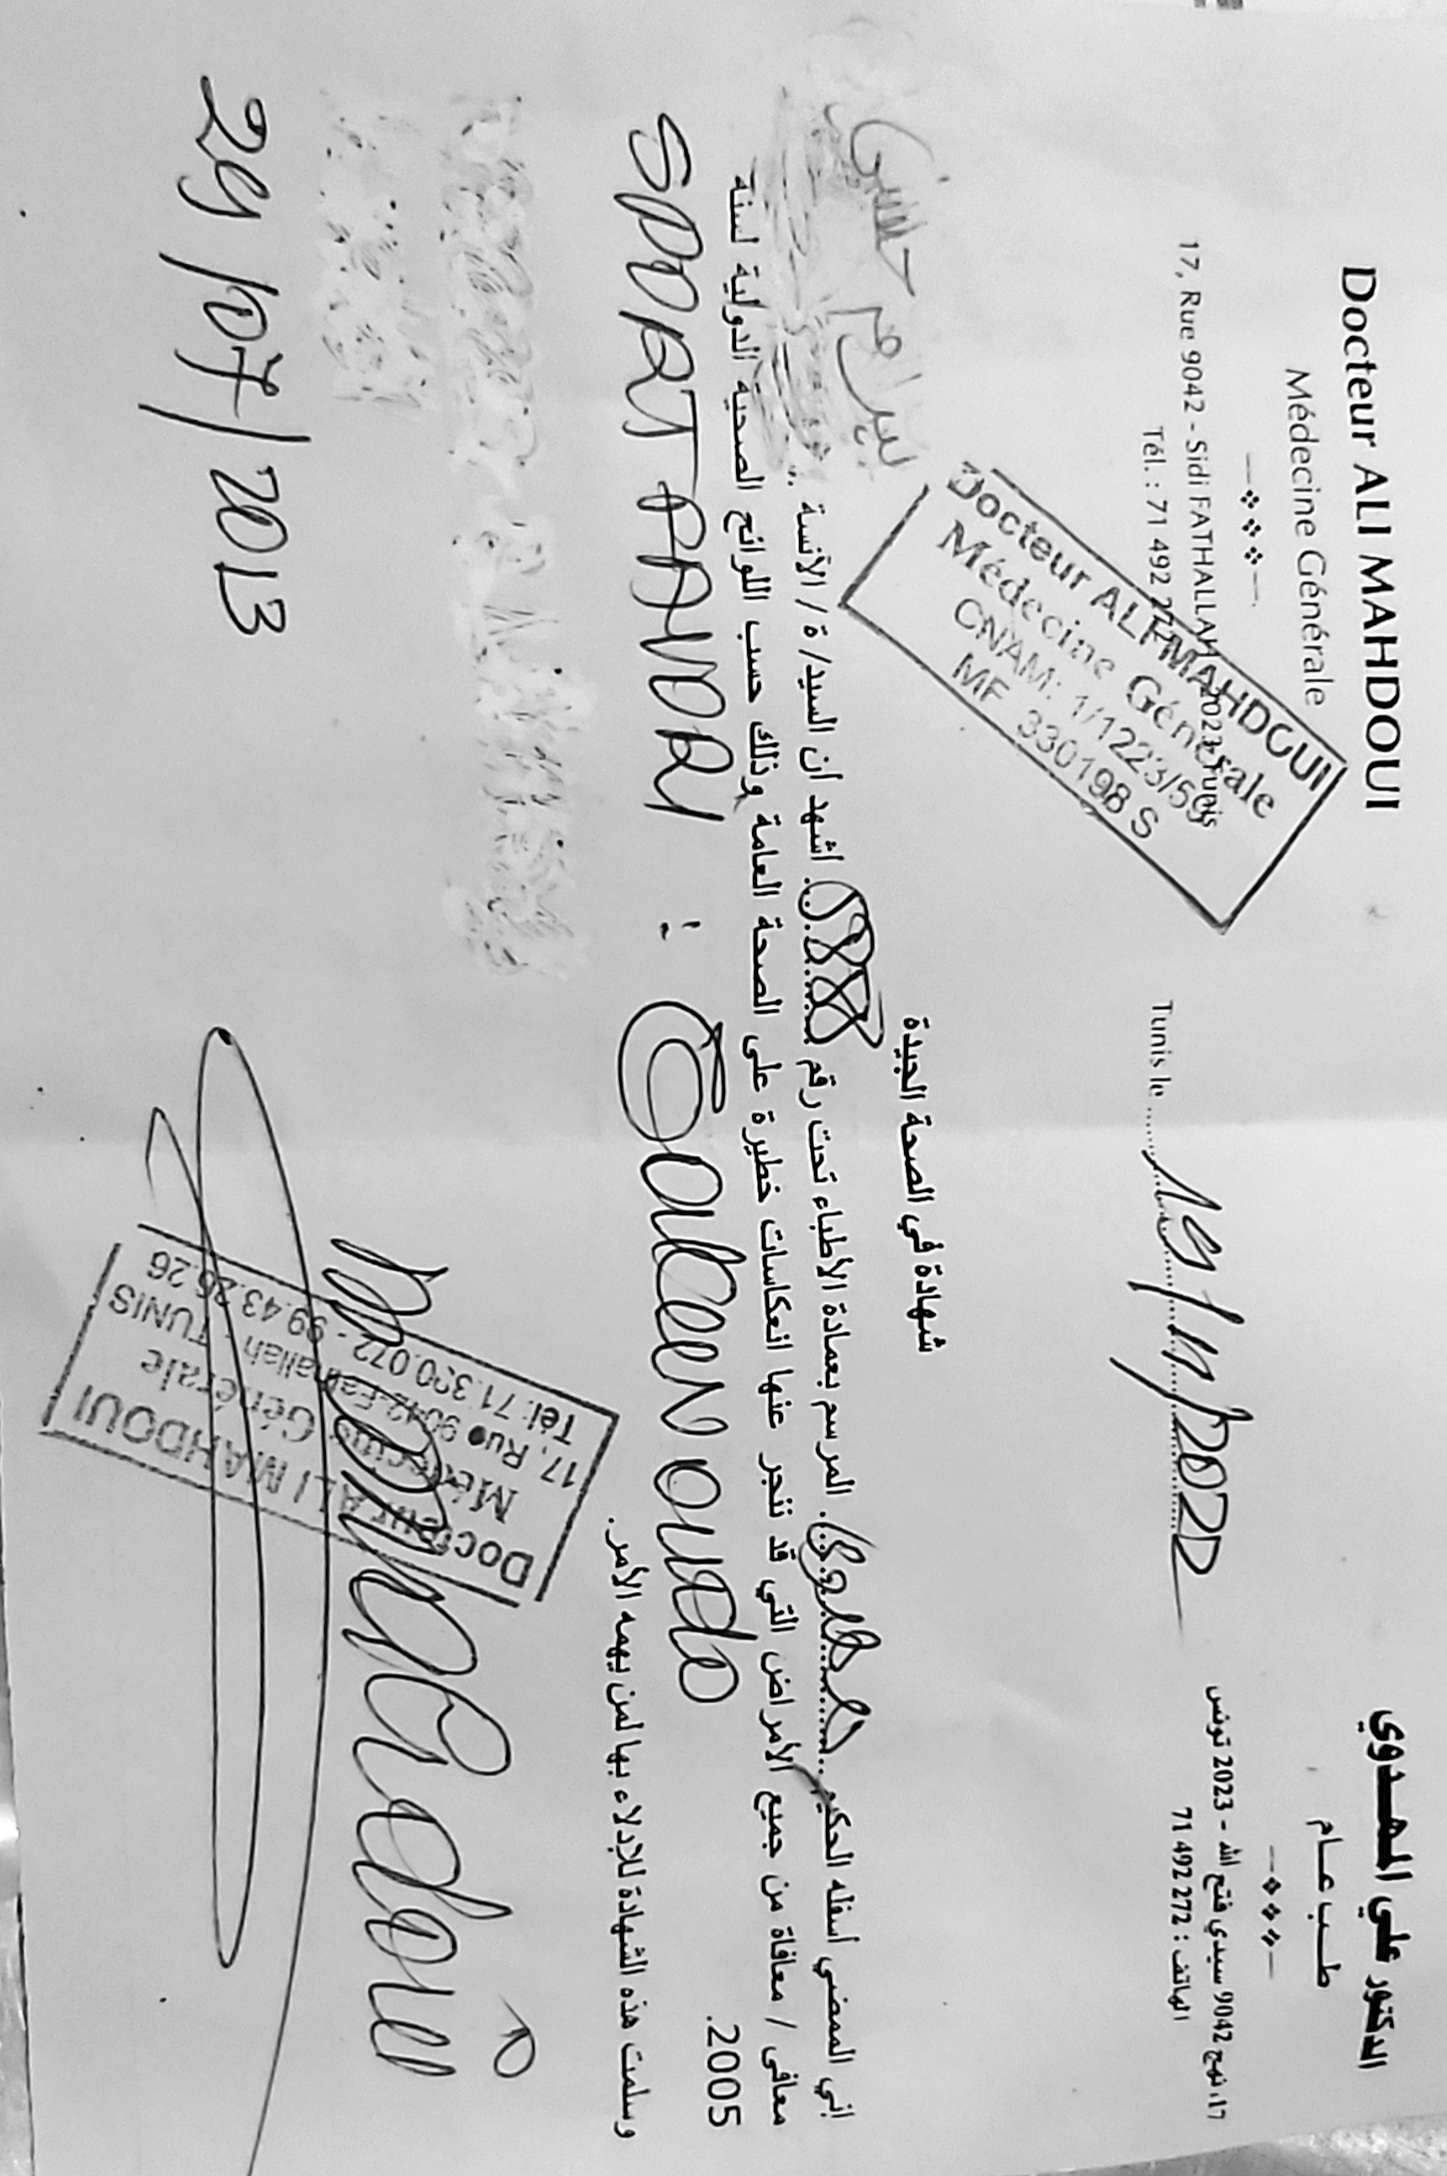 Docteur ALI MAHDOUI
Médecine Générale
17, Rue 9042 - Sidi FATHALLAH 2023 Tunis
Tél. : 71 492 272
الدكتور علي المهدوي
طب عام
17، نهج 9042 سيدي فتح الله - 2023 تونس
الهاتف : 71 492 272
Docteur ALI MAHDOUI
Médecine Générale
CNAM: 1/1223/59
MF 330198 S
Tunis le
شهادة في الصحة الجيدة
إني الممضي أسفله الحكيم المرسم بعمادة الأطباء تحت رقم اشهد أن السيد/ ة / الآنسة
معافى / معافاة من جميع الأمراض التي قد تنجر عنها انعكاسات خطيرة على الصحة العامة وذلك حسب اللوائح الصحية الدولية لسنة
2005.
SPORT PANDRI :
وسلمت هذه الشهادة للإدلاء بها لمن يهمه الأمر.
Docteur ALI MAHDOUI
Médecine Générale
17, Rue 9042 Fathallah TUNIS
Tél: 71.390.072 - 99.43.26.26
29/07/2013